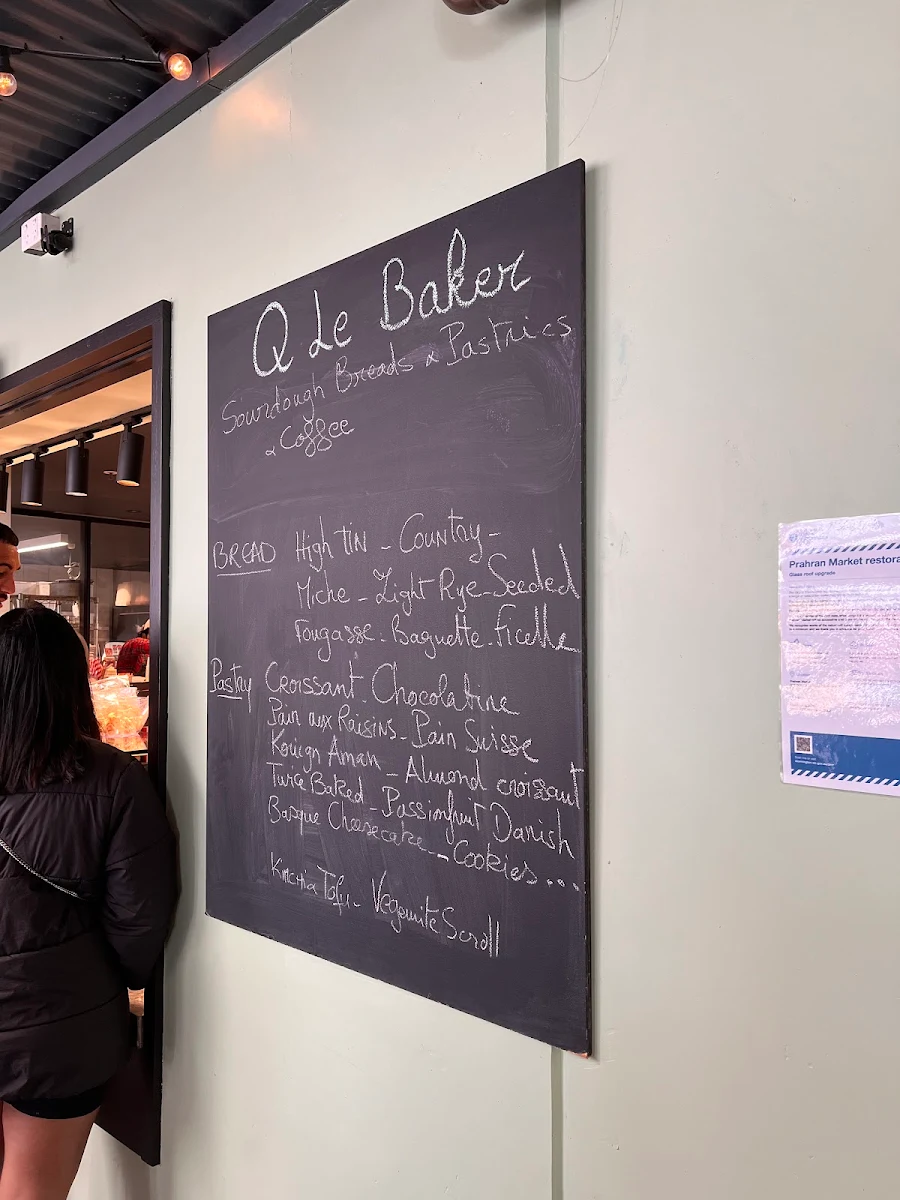 Q Le Baker
Sourdough Breads & Pastries
& Coffee
BREAD High tin - Country -
Miche - Light Rye - Seeded
Fougasse - Baguette - Ficelle
Pastry Croissant - Chocolatine
Pain aux Raisins - Pain Suisse
Kouign Aman - Almond croissant
Twice Baked - Passionfruit Danish
Basque Cheesecake - Cookies ...
Kimchi & Tofu - Vegemite Scroll
Prahran Market restora
Glass roof upgrade